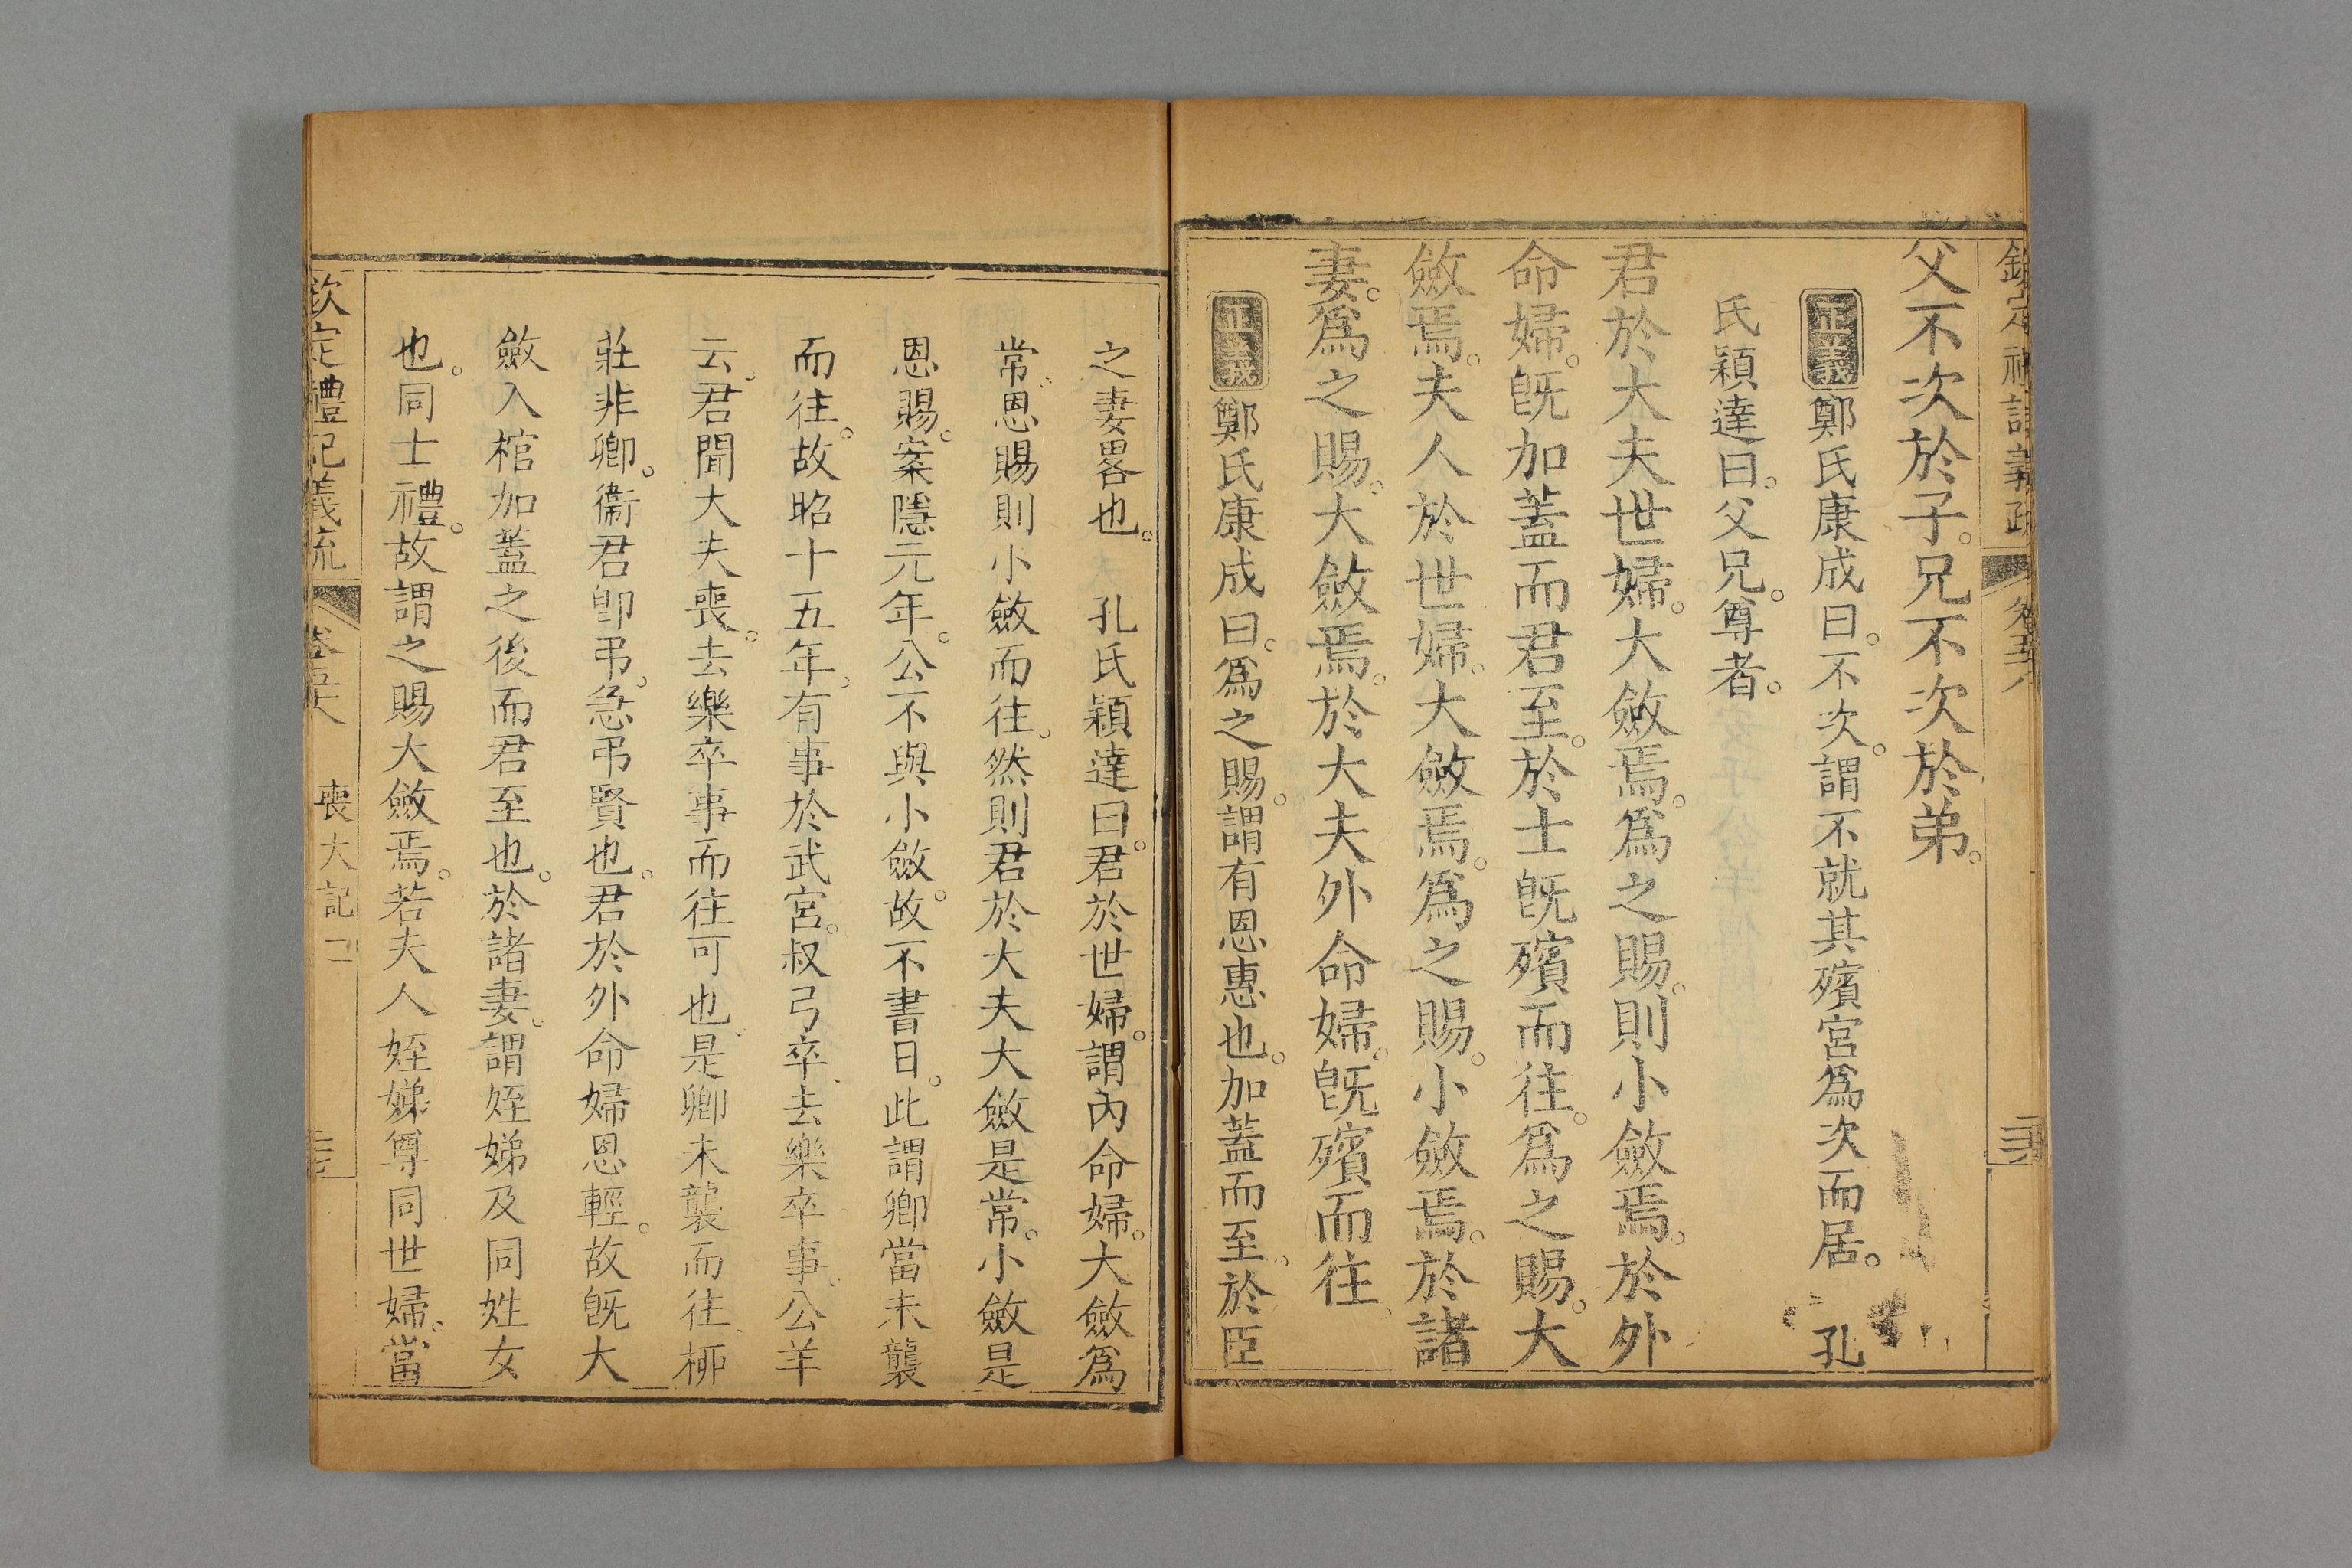 欽定禮記義疏 卷五十八
父不次於子。兄不次於弟。
正義 鄭氏康成曰。不次。謂不就其殯宮爲次而居。 孔
氏穎達曰。父兄。尊者。
君於大夫世婦。大斂焉。爲之賜。則小斂焉。於外
命婦。旣加蓋而君至。於士旣殯而往。爲之賜。大
斂焉。夫人於世婦。大斂焉。爲之賜。小斂焉。於諸
妻。爲之賜。大斂焉。於大夫外命婦。旣殯而往、
正義 鄭氏康成曰。爲之賜。謂有恩惠也。加蓋而至、於臣
之妻畧也。 孔氏穎達曰。君於世婦。謂內命婦。大斂爲
常。恩賜則小斂而往、然則君於大夫大斂是常。小斂是
恩賜。案隱元年。公不與小斂。故不書日。此謂卿當未襲
而往。故昭十五年、有事於武宮。叔弓卒、去樂卒事、公羊
云、君聞大夫喪。去樂卒事而往可也、是卿未襲而往、柳
莊非卿。衞君卽弔、急弔賢也、君於外命婦恩輕。故旣大
斂入棺加蓋之後而君至也。於諸妻、謂姪娣及同姓女
也。同士禮。故謂之賜大斂焉。若夫人姪娣尊同世婦。當
欽定禮記義疏 卷五十八 喪大記